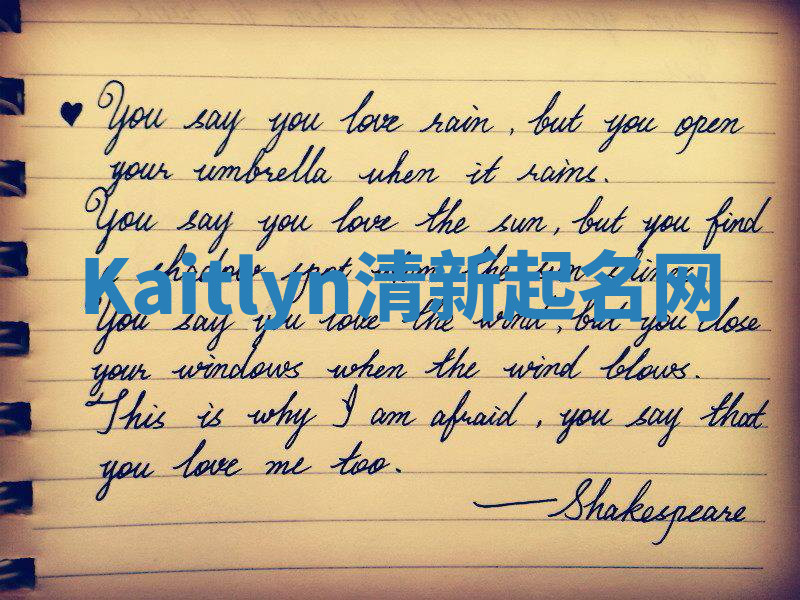 ♥ You say you love rain, but you open
your umbrella when it rains.
You say you love the sun, but you find
a shadow spot when the sun shines.
Kaitlyn清新起名网
You say you love the wind, but you close
your windows when the wind blows.
This is why I am afraid, you say that
you love me too.
—Shakespeare